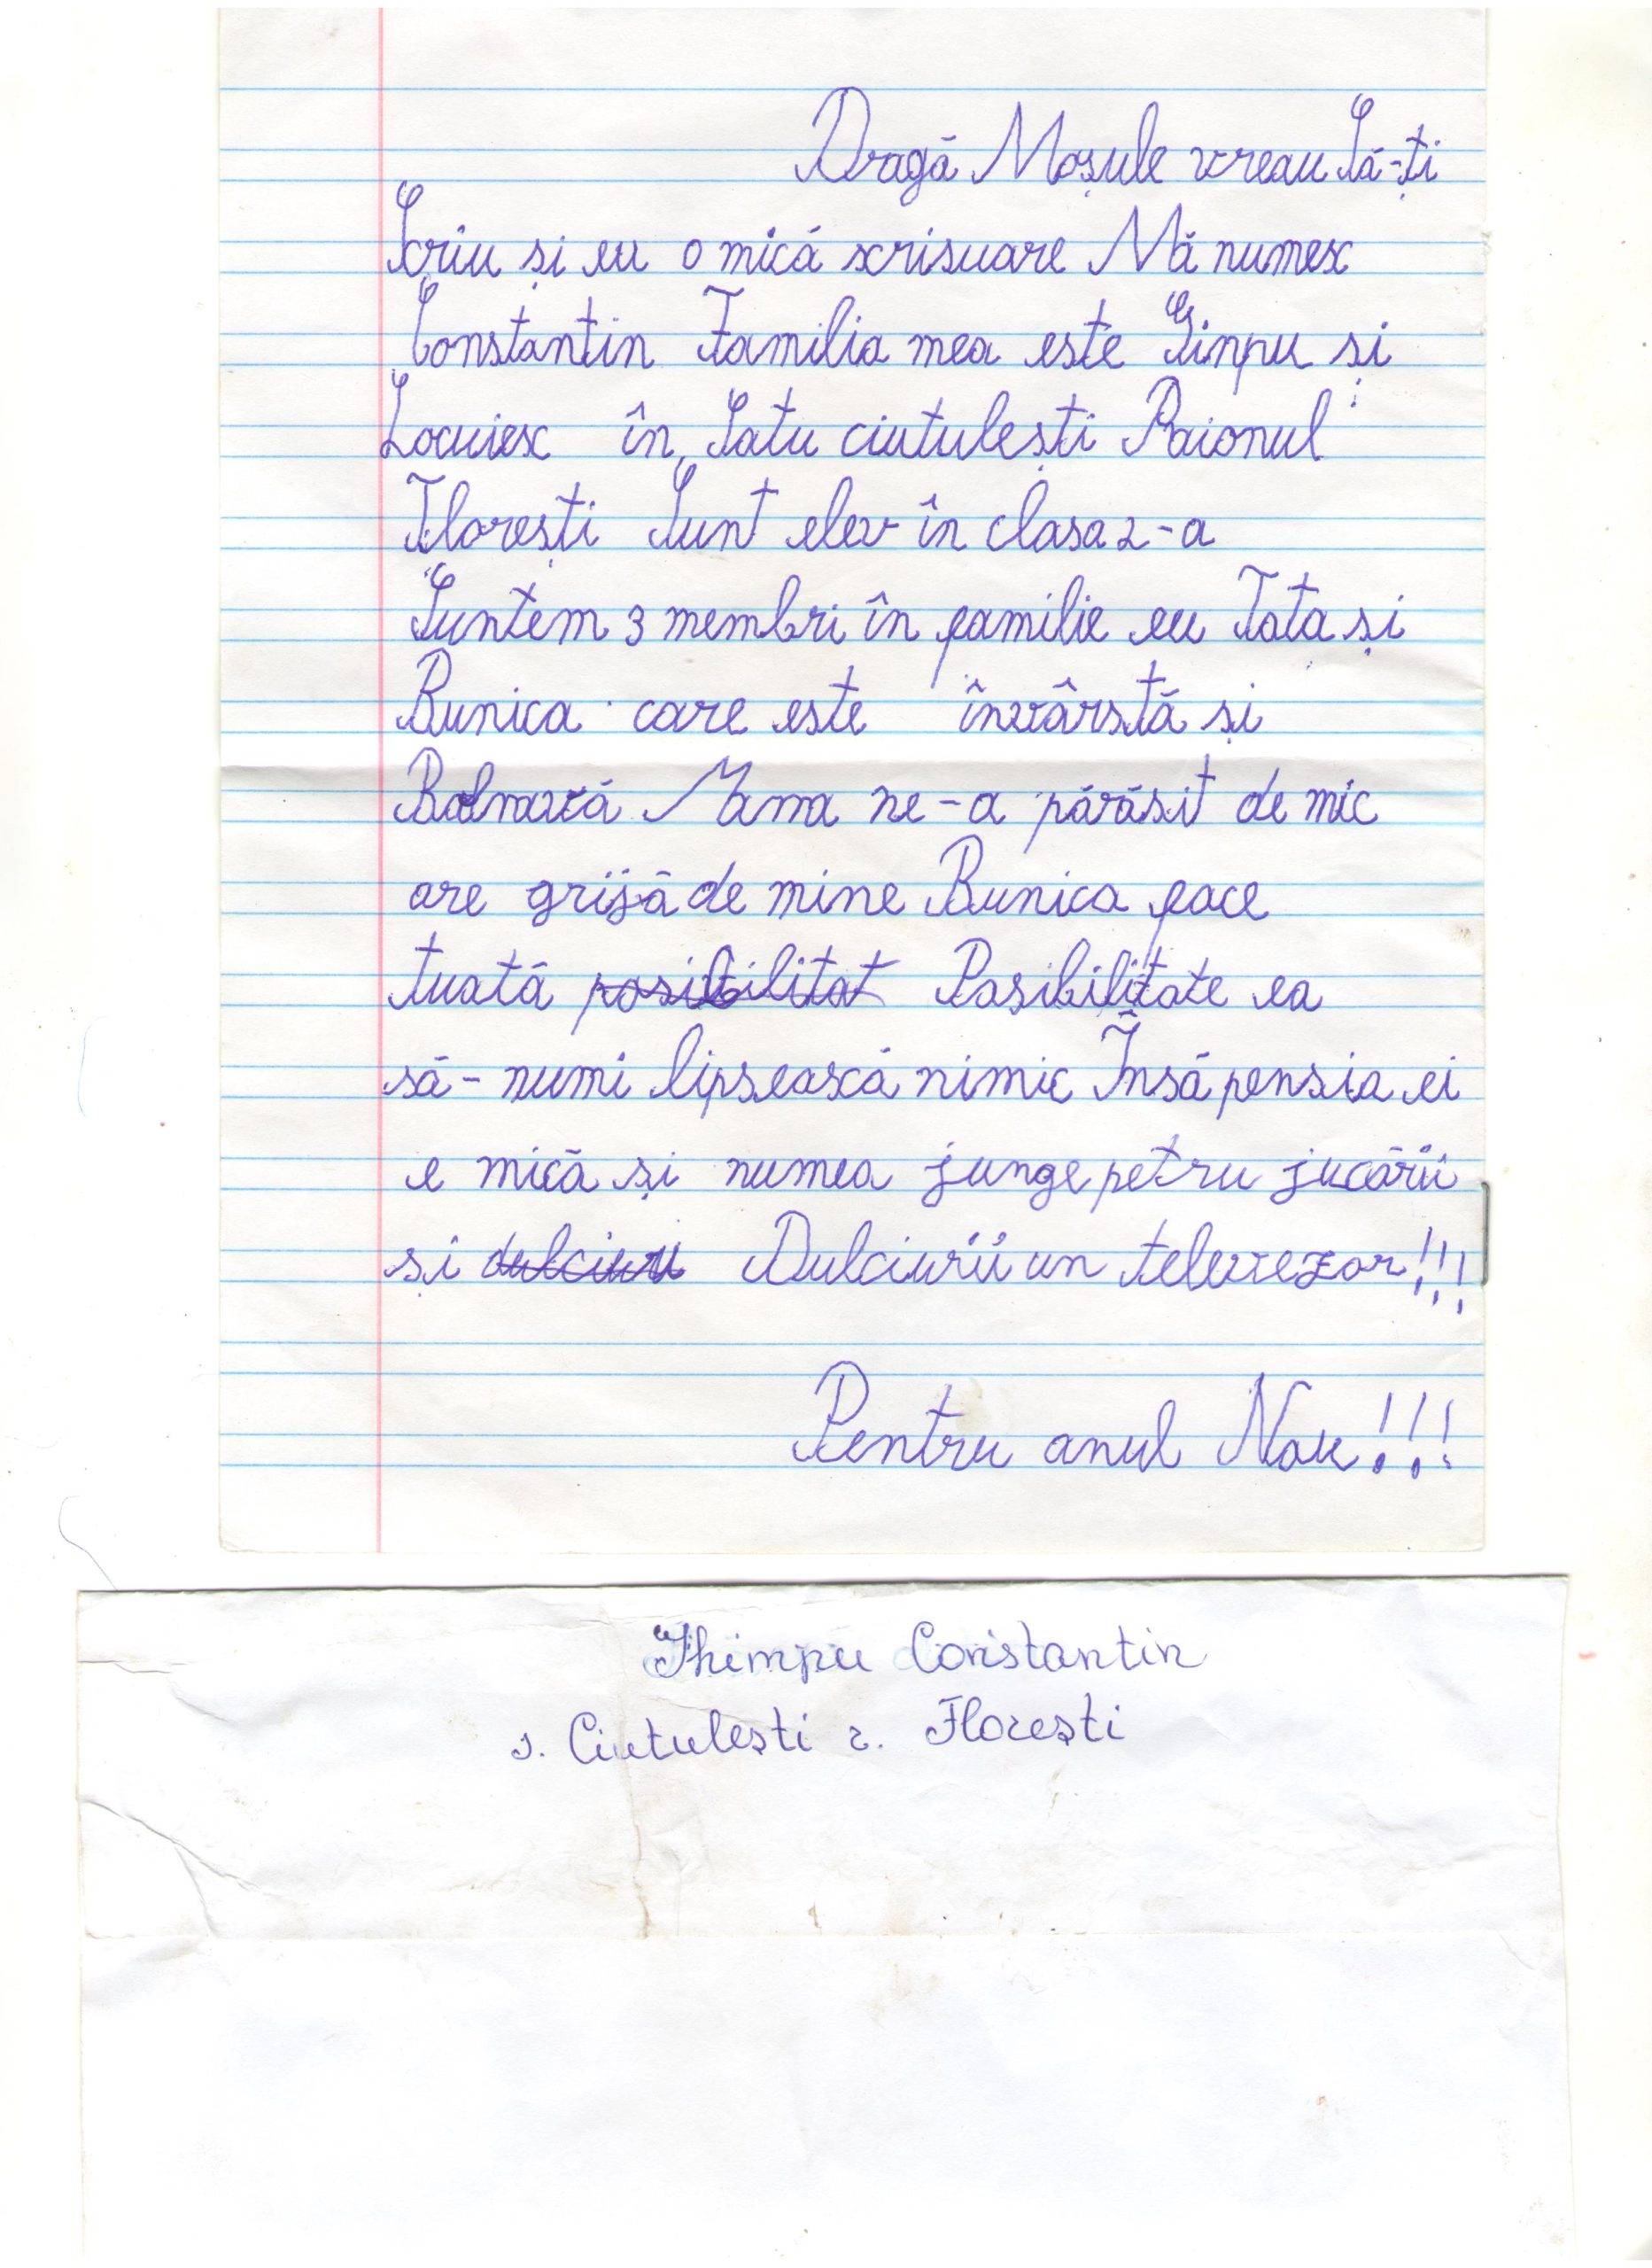 Dragă Moșule vreau Să-ți
Scriu și eu o mică scrisuare Mă numesc
Constantin Familia mea este Ginpu și
Locuiesc în Satu ciutulești Raionul
Florești Sunt elev în clasa 2-a
Suntem 3 membri în familie eu Tata și
Bunica care este învârstă și
Bolnavă Mama ne-a părăsit de mic
are grijă de mine Bunica face
tuată posibilitat Posibilitate ea
să-numi lipsească nimic Însă pensia ei
e mică și numea junge petru jucării
și dulciuri Dulciurii un televezor!!!
Pentru anul Nou!!!
Ghimpu Constantin
s. Ciutulești r. Florești